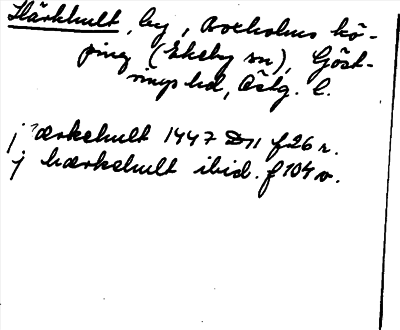 Härkhult, by, Boxholms kö-
ping (Ekeby sn), Göst-
rings hd, Östg. l.
j ærkehult 1447 D11 f 26 r.
j hærkehult ibid. f 104 v.